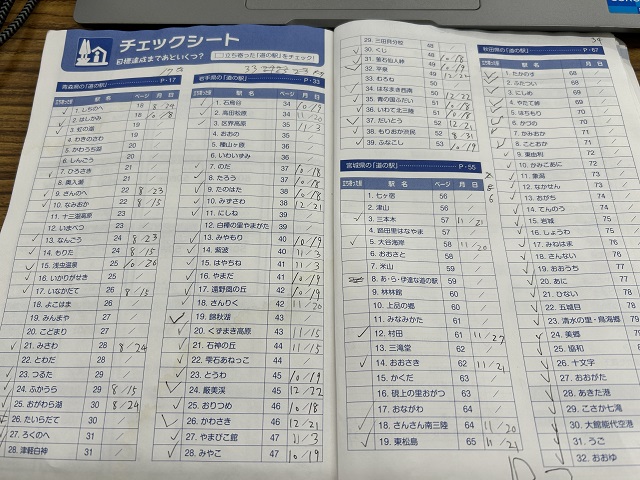 チェックシート
目標達成まであといくつ?
□立ち寄った「道の駅」をチェック!
青森県の「道の駅」 P・17
駅名 ページ 月日
1. しちのへ 18 8/29
2. はしかみ 18 10/8
3. 虹の湖 19
4. わきのさわ 19
5. かわうち湖 20
6. しんごう 20
7. ひろさき 21
8. 奥入瀬 21
9. さんのへ 22 8/23
10. なみおか 22 8/15
11. 十三湖高原 23
12. いまべつ 23
13. なんごう 24 8/23
14. もりた 24 8/15
15. 浅虫温泉 25 10/26
16. いかりがせき 25
17. いなかだて 26 8/15
18. よこはま 26
19. みんまや 27
20. こどまり 27
21. みさわ 28 8/24
22. とわだ 28
23. つるた 29
24. ふかうら 29 8/15
25. おがわら湖 30 8/24
26. たいらだて 30
27. ろくのへ 31
28. 津軽白神 31
岩手県の「道の駅」 P・33
駅名 ページ 月日
1. 石鳥谷 34 10/19
2. 高田松原 34 11/20
3. 区界高原 35 11/3
4. おおの 35
5. 種山ヶ原 36
6. いわいずみ 36
7. のだ 37 10/18
8. たろう 37 10/18
9. たのはた 38 10/18
10. みずさわ 38 12/21
11. にしね 39
12. 白樺の里やまがた 39
13. みやもり 40 10/19
14. 紫波 40 11/3
15. はやちね 41 11/3
16. やまだ 41 10/19
17. 遠野風の丘 42 10/19
18. さんりく 42 11/20
19. 錦秋湖 43
20. くずまき高原 43 11/15
21. 石神の丘 44 11/15
22. 雫石あねっこ 44
23. とうわ 45 10/19
24. 厳美渓 45 12/22
25. おりつめ 46 10/18
26. かわさき 46 12/21
27. やまびこ館 47 11/3
28. みやこ 47 10/19
29. 三田貝分校 48
30. くじ 48 10/18
31. 釜石仙人峠 49
32. 平泉 49
33. むろね 50
34. はなまき西南 50
35. 青の国ふだい 51 10/18
36. いわて北三陸 51 10/18
37. だいとう 52 12/21
38. もりおか渋民 52 8/31
39. ふなこし 53 10/19
宮城県の「道の駅」 P・55
駅名 ページ 月日
1. 七ヶ宿 56
2. 津山 56
3. 三本木 57 11/21
4. 路田里はなやま 57
5. 大谷海岸 58 11/20
6. おおさと 58
7. 米山 59
8. あ・ら・伊達な道の駅 59
9. 林林館 60
10. 上品の郷 60
11. みなみかた 61
12. 村田 61 11/27
13. 三滝堂 62
14. おおさき 62 11/21
15. かくだ 63
16. 硯上の里おがつ 63
17. おながわ 64
18. さんさん南三陸 64 11/20
19. 東松島 65 11/21
39
秋田県の「道の駅」 P・67
駅名 ページ 月日
1. たかのす 68
2. ふたつい 68
3. にしめ 69
4. やたて峠 69
5. はちもり 70
6. かづの 70
7. かみおか 71
8. ことおか 71
9. 東由利 72
10. かみこあに 72
11. 象潟 73
12. なかせん 73
13. おがち 74
14. てんのう 74
15. 岩城 75
16. しょうわ 75
17. みねはま 76
18. さんない 76
19. おおうち 77
20. あに 77
21. ひない 78
22. 五城目 78
23. 清水の里・鳥海郷 79
24. 美郷
25. 協和
26. 十文字
27. おおがた
28. あきた港
29. こさか七滝
30. 大館能代空港
31. うご
32. おおゆ